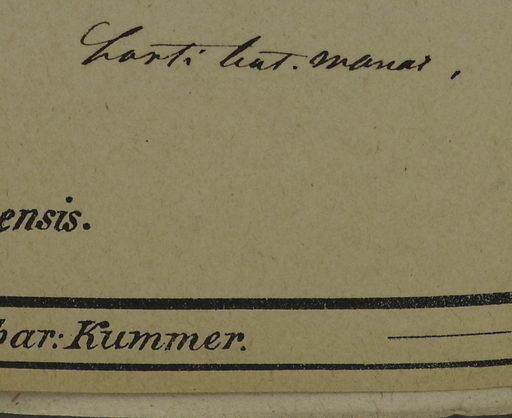 horti bot. monac,
ensis.
par: Kummer.